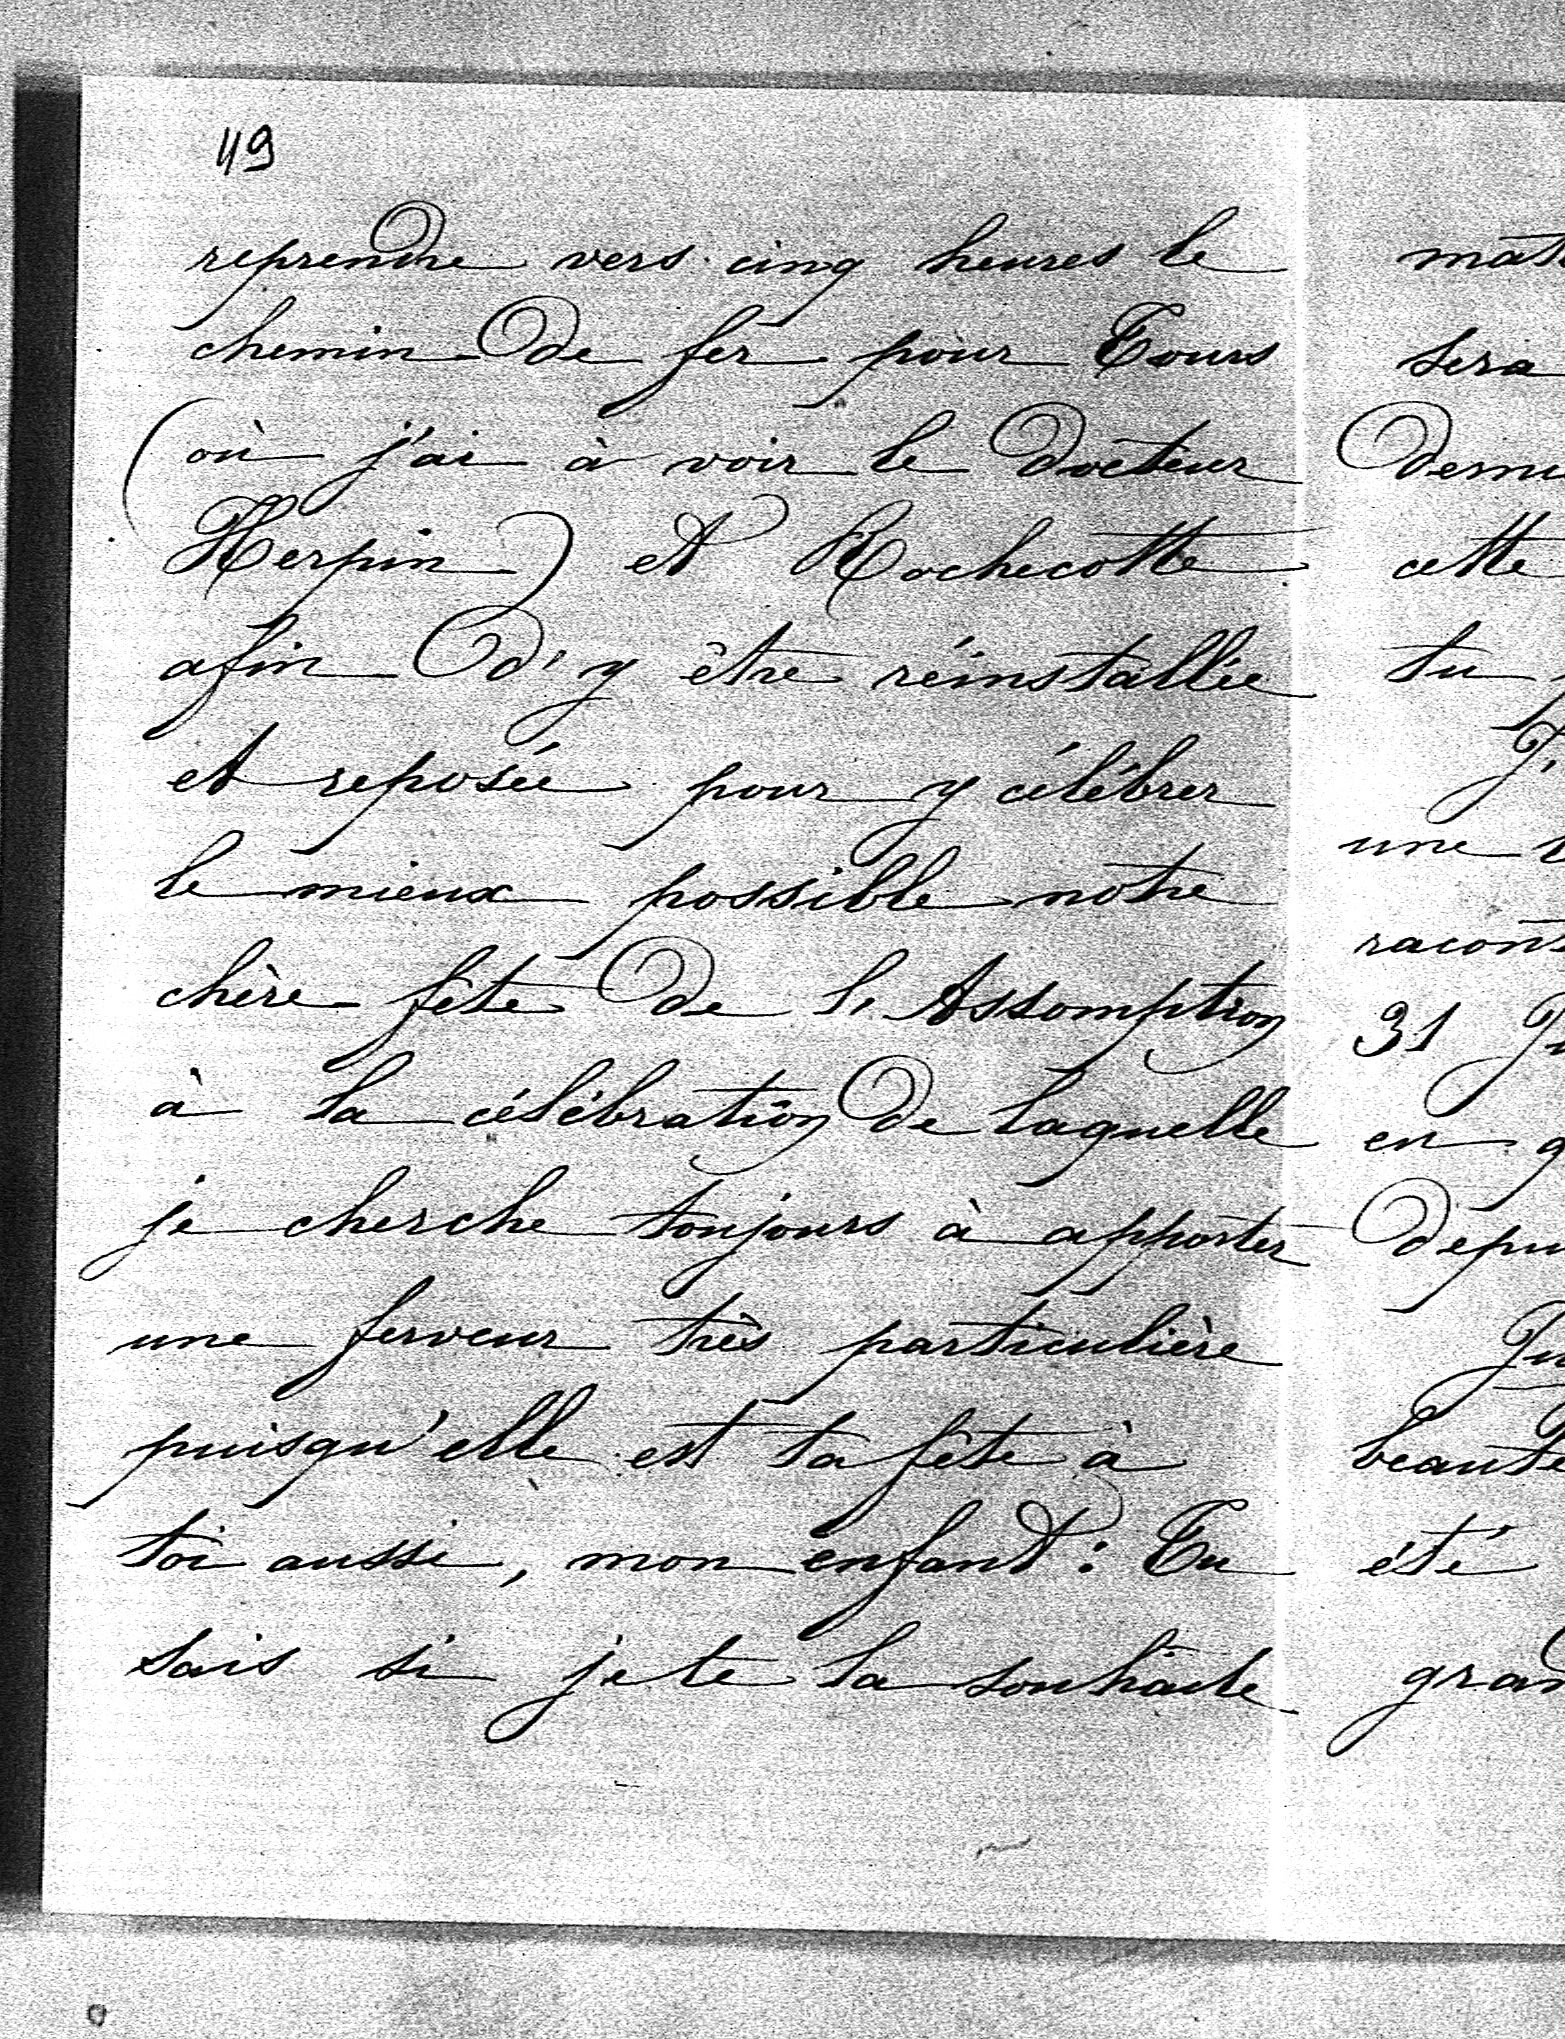 49
reprendre vers cinq heures le
chemin de fer pour Tours
(où j'ai à voir le docteur
Herpin) et Rochecotte
afin d'y être réinstallée
et reposée pour y célébrer
le mieux possible notre
chère fête de l'Assomption
à la célébration de laquelle
je cherche toujours à apporter
une ferveur très particulière
puisqu'elle est ta fête à
toi aussi, mon enfant : Tu
sais si je te la souhaite
sera
cette
tu
une
31
en
été